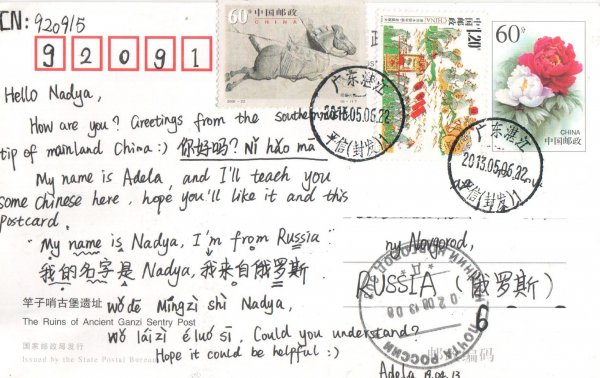 CN: 920915
9 2 0 9 1
60分
中国邮政
CHINA
中国邮政
CHINA
1.20元
60分
CHINA
中国邮政
广东湛江
2013.05.06.22
平信(封发)1
广东湛江
2013.05.06.22
平信(封发)1
Hello Nadya,
How are you? Greetings from the southern
tip of mainland China:) 你好吗? Nǐ hǎo ma
My name is Adela, and I'll teach you
some Chinese here, hope you'll like it and this
postcard.
"My name is Nadya, I'm from Russia"
我的名字是Nadya, 我来自俄罗斯
wǒ dē Míngzì shì Nadya,
wǒ láizì éluósī, Could you understand?
Hope it could be helpful :)
竿子哨古堡遗址
The Ruins of Ancient Ganzi Sentry Post
国家邮政局发行
Issued by the State Postal Bureau
ny Novgorod,
RUSSIA (俄罗斯)
ПОЧТА РОССИИ
НИЖНИЙ НОВГОРОД
6
编码
Adela